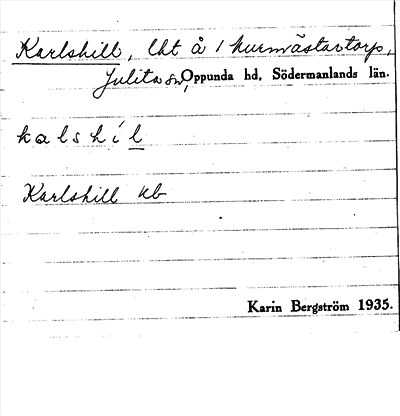 Karlshill, lht å 1 Murmästartorp,
Julita sn, Oppunda hd, Södermanlands län.
kalshíl
Karlshill kb
Karin Bergström 1935.